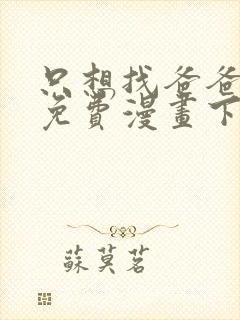 只想找爸爸
免費漫畫下
蘇莫茗